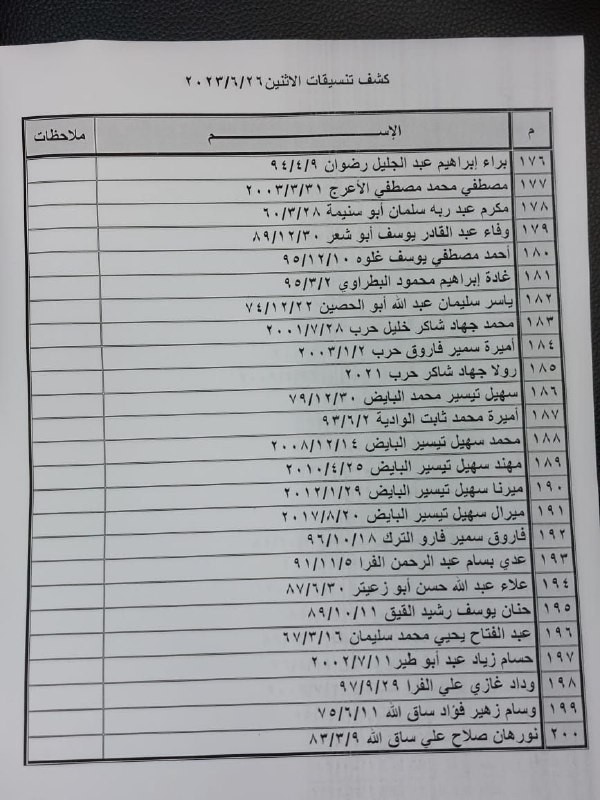 كشف تنسيقات الاثنين ٢٠٢٣/٦/٢٦
م الإســـــــم ملاحظات
١٧٦ براء إبراهيم عبد الجليل رضوان ٩٤/٤/٩
١٧٧ مصطفي محمد مصطفي الأعرج ٢٠٠٣/٣/٣١
١٧٨ مكرم عبد ربه سلمان أبو سنيمة ٦٠/٣/٢٨
١٧٩ وفاء عبد القادر يوسف أبو شعر ٨٩/١٢/٣٠
١٨٠ أحمد مصطفي يوسف غلوه ٩٥/١٢/١٠
١٨١ غادة إبراهيم محمود البطراوي ٩٥/٣/٢
١٨٢ ياسر سليمان عبد الله أبو الحصين ٧٤/١٢/٢٢
١٨٣ محمد جهاد شاكر خليل حرب ٢٠٠١/٧/٢٨
١٨٤ أميرة سمير فاروق حرب ٢٠٠٣/١/٢
١٨٥ رولا جهاد شاكر حرب ٢٠٢١
١٨٦ سهيل تيسير محمد البايض ٧٩/١٢/٣٠
١٨٧ أميرة محمد ثابت الوادية ٩٣/٦/٢
١٨٨ محمد سهيل تيسير البايض ٢٠٠٨/١٢/١٤
١٨٩ مهند سهيل تيسير البايض ٢٠١٠/٤/٢٥
١٩٠ ميرنا سهيل تيسير البايض ٢٠١٢/١/٢٩
١٩١ ميرال سهيل تيسير البايض ٢٠١٧/٨/٢٠
١٩٢ فاروق سمير فارو الترك ٩٦/١٠/١٨
١٩٣ عدي بسام عبد الرحمن الفرا ٩١/١١/٥
١٩٤ علاء عبد الله حسن أبو زعيتر ٨٧/٦/٣٠
١٩٥ حنان يوسف رشيد القيق ٨٩/١٠/١١
١٩٦ عبد الفتاح يحيي محمد سليمان ٦٧/٣/١٦
١٩٧ حسام زياد عبد أبو طير ٢٠٠٢/٧/١١
١٩٨ وداد غازي علي الفرا ٩٧/٩/٢٩
١٩٩ وسام زهير فؤاد ساق الله ٧٥/٦/١١
٢٠٠ نورهان صلاح علي ساق الله ٨٣/٣/٩